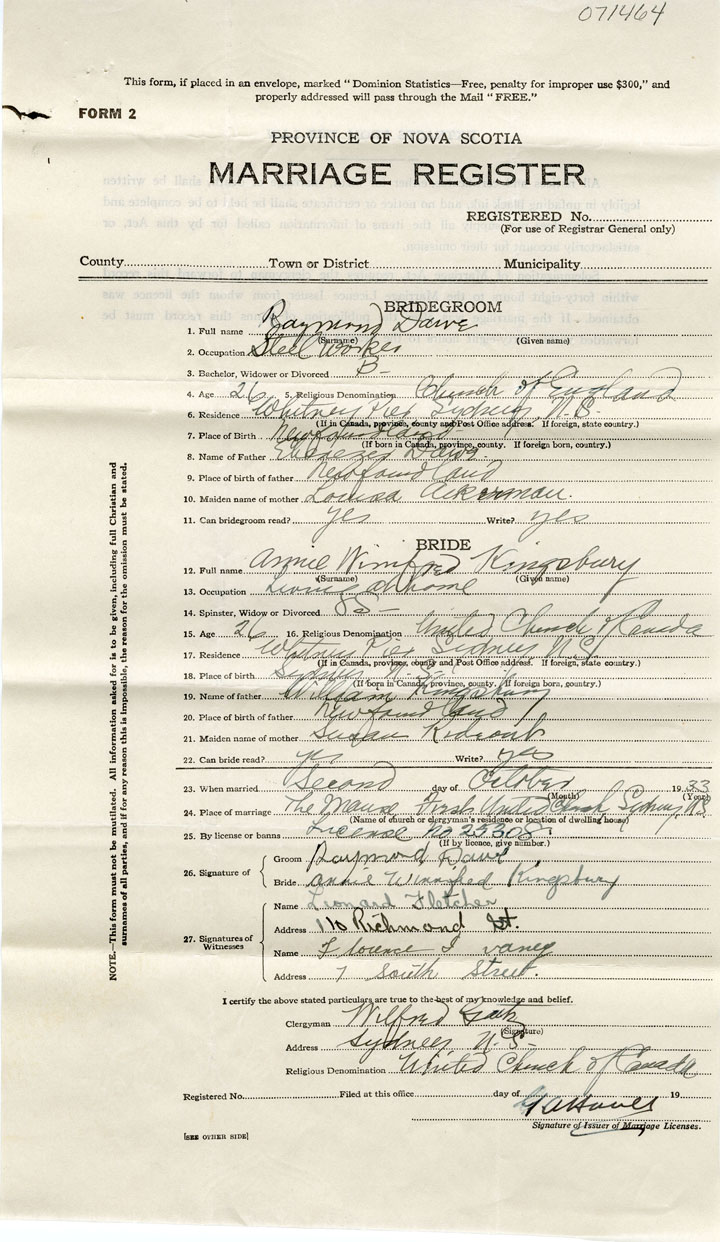 071464
This form, if placed in an envelope, marked "Dominion Statistics—Free, penalty for improper use $300," and
properly addressed will pass through the Mail "FREE."
FORM 2
PROVINCE OF NOVA SCOTIA
MARRIAGE REGISTER
REGISTERED No.
(For use of Registrar General only)
County Town or District Municipality
BRIDEGROOM
1. Full name Raymond Dawe
(Surname) (Given name)
2. Occupation Steel Worker
3. Bachelor, Widower or Divorced B-
4. Age 26 5. Religious Denomination Church of England
6. Residence Whitney Pier Sydney, N.S.
(If in Canada, province, county and Post Office address. If foreign, state country.)
7. Place of Birth Newfoundland
(If born in Canada, province, county. If foreign born, country.)
8. Name of Father Ebenezer Dawe
9. Place of birth of father Newfoundland
10. Maiden name of mother Louisa Ackerman.
11. Can bridegroom read? yes Write? yes
BRIDE
12. Full name Annie Winifred Kingsbury
(Surname) (Given name)
13. Occupation Living at home
14. Spinster, Widow or Divorced S-
15. Age 26 16. Religious Denomination United Church of Canada
17. Residence Whitney Pier Sydney N.S.
(If in Canada, province, county and Post Office address. If foreign, state country.)
18. Place of birth Sydney N.S.
(If born in Canada, province, county. If foreign born, country.)
19. Name of father William Kingsbury
20. Place of birth of father Newfoundland
21. Maiden name of mother Susan Rideout
22. Can bride read? yes Write? yes
23. When married Second day of October 1933
(Month) (Year)
24. Place of marriage The Manse First United Church Sydney N.S.
(Name of church or clergyman's residence or location of dwelling house)
25. By license or banns License No 25308
(If by licence, give number.)
26. Signature of
Groom Raymond Dawe
Bride Annie Winnifred Kingsbury
27. Signatures of Witnesses
Name Leonard Fletcher
Address 110 Richmond St.
Name Florence
Address 7 South Street.
I certify the above stated particulars are true to the best of my knowledge and belief.
Clergyman Wilfred
(Signature)
Address Sydney N.S.
Religious Denomination United Church of Canada
Registered No. Filed at this office day of 19
Signature of Issuer of Marriage Licenses.
[SEE OTHER SIDE]
NOTE.—This form must not be mutilated. All information asked for is to be given, including full Christian and
surnames of all parties, and if for any reason this is impossible, the reason for the omission must be stated.